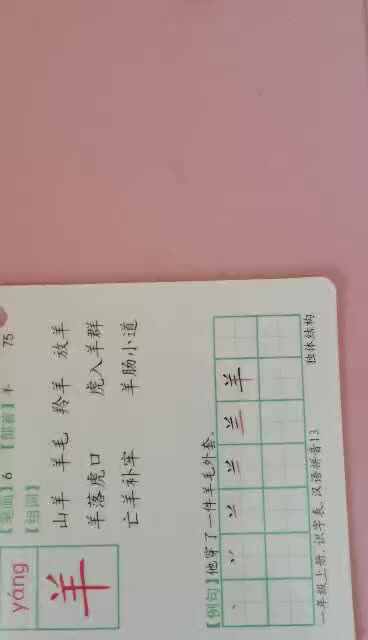 yáng
羊
【笔画】6 【部首】羊 75
【组词】
山羊 羊毛 羚羊 放羊
羊落虎口 虎入羊群
亡羊补牢 羊肠小道
【例句】他穿了一件羊毛外套。
羊
独体结构
一年级上册，识字表，汉语拼音13